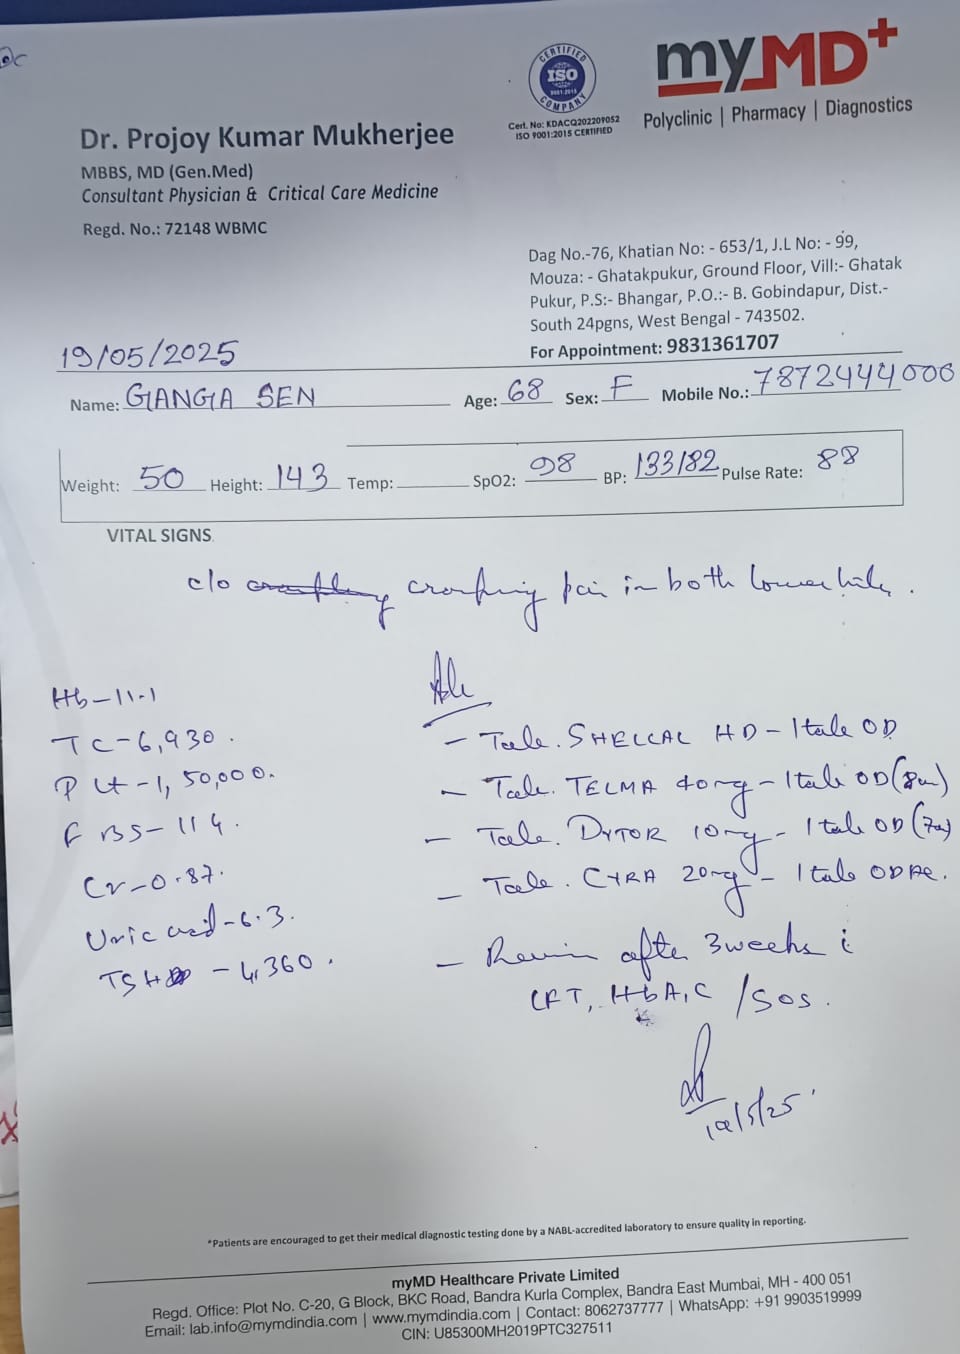 CERTIFIED
ISO
9001:2015
COMPANY
Cert. No: KDACQ202209052
ISO 9001:2015 CERTIFIED
myMD+
Polyclinic | Pharmacy | Diagnostics
Dr. Projoy Kumar Mukherjee
MBBS, MD (Gen.Med)
Consultant Physician & Critical Care Medicine
Regd. No.: 72148 WBMC
Dag No.-76, Khatian No: - 653/1, J.L No: - 99,
Mouza: - Ghatakpukur, Ground Floor, Vill:- Ghatak
Pukur, P.S:- Bhangar, P.O.:- B. Gobindapur, Dist.-
South 24pgns, West Bengal - 743502.
For Appointment: 9831361707
19/05/2025
Name: GANGA SEN Age: 68 Sex: F Mobile No.: 7872444000
Weight: 50 Height: 143 Temp: SpO2: 98 BP: 133/82 Pulse Rate: 88
VITAL SIGNS
c/o cramping pain in both lower limbs.
Hb-11.1
TC-6,930.
Plt-1,50,000.
FBS-114.
Cr-0.87.
Uric acid-6.3.
TSH - 4.360.
Adv
- Tab. SHELCAL HD - 1 tab OD
- Tab. TELMA 40mg - 1 tab OD (8am)
- Tab. DYTOR 10mg - 1 tab OD
- Tab. CYRA 20mg - 1 tab OD AC.
- Review after 3 weeks c̄
LFT, HbA1C /SOS.
19/5/25
*Patients are encouraged to get their medical diagnostic testing done by a NABL-accredited laboratory to ensure quality in reporting.
myMD Healthcare Private Limited
Regd. Office: Plot No. C-20, G Block, BKC Road, Bandra Kurla Complex, Bandra East Mumbai, MH - 400 051
Email: lab.info@mymdindia.com | www.mymdindia.com | Contact: 8062737777 | WhatsApp: +91 9903519999
CIN: U85300MH2019PTC327511